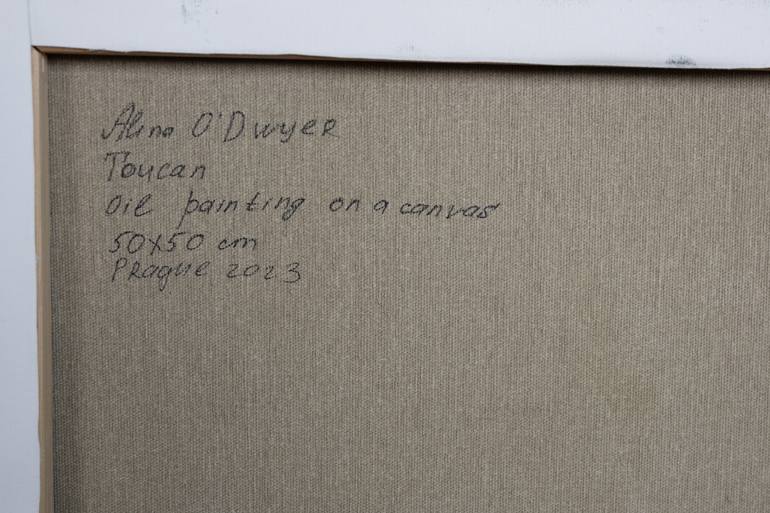 Alina O'Dwyer
Toucan
Oil painting on a canvas
50x50 cm
Prague 2023